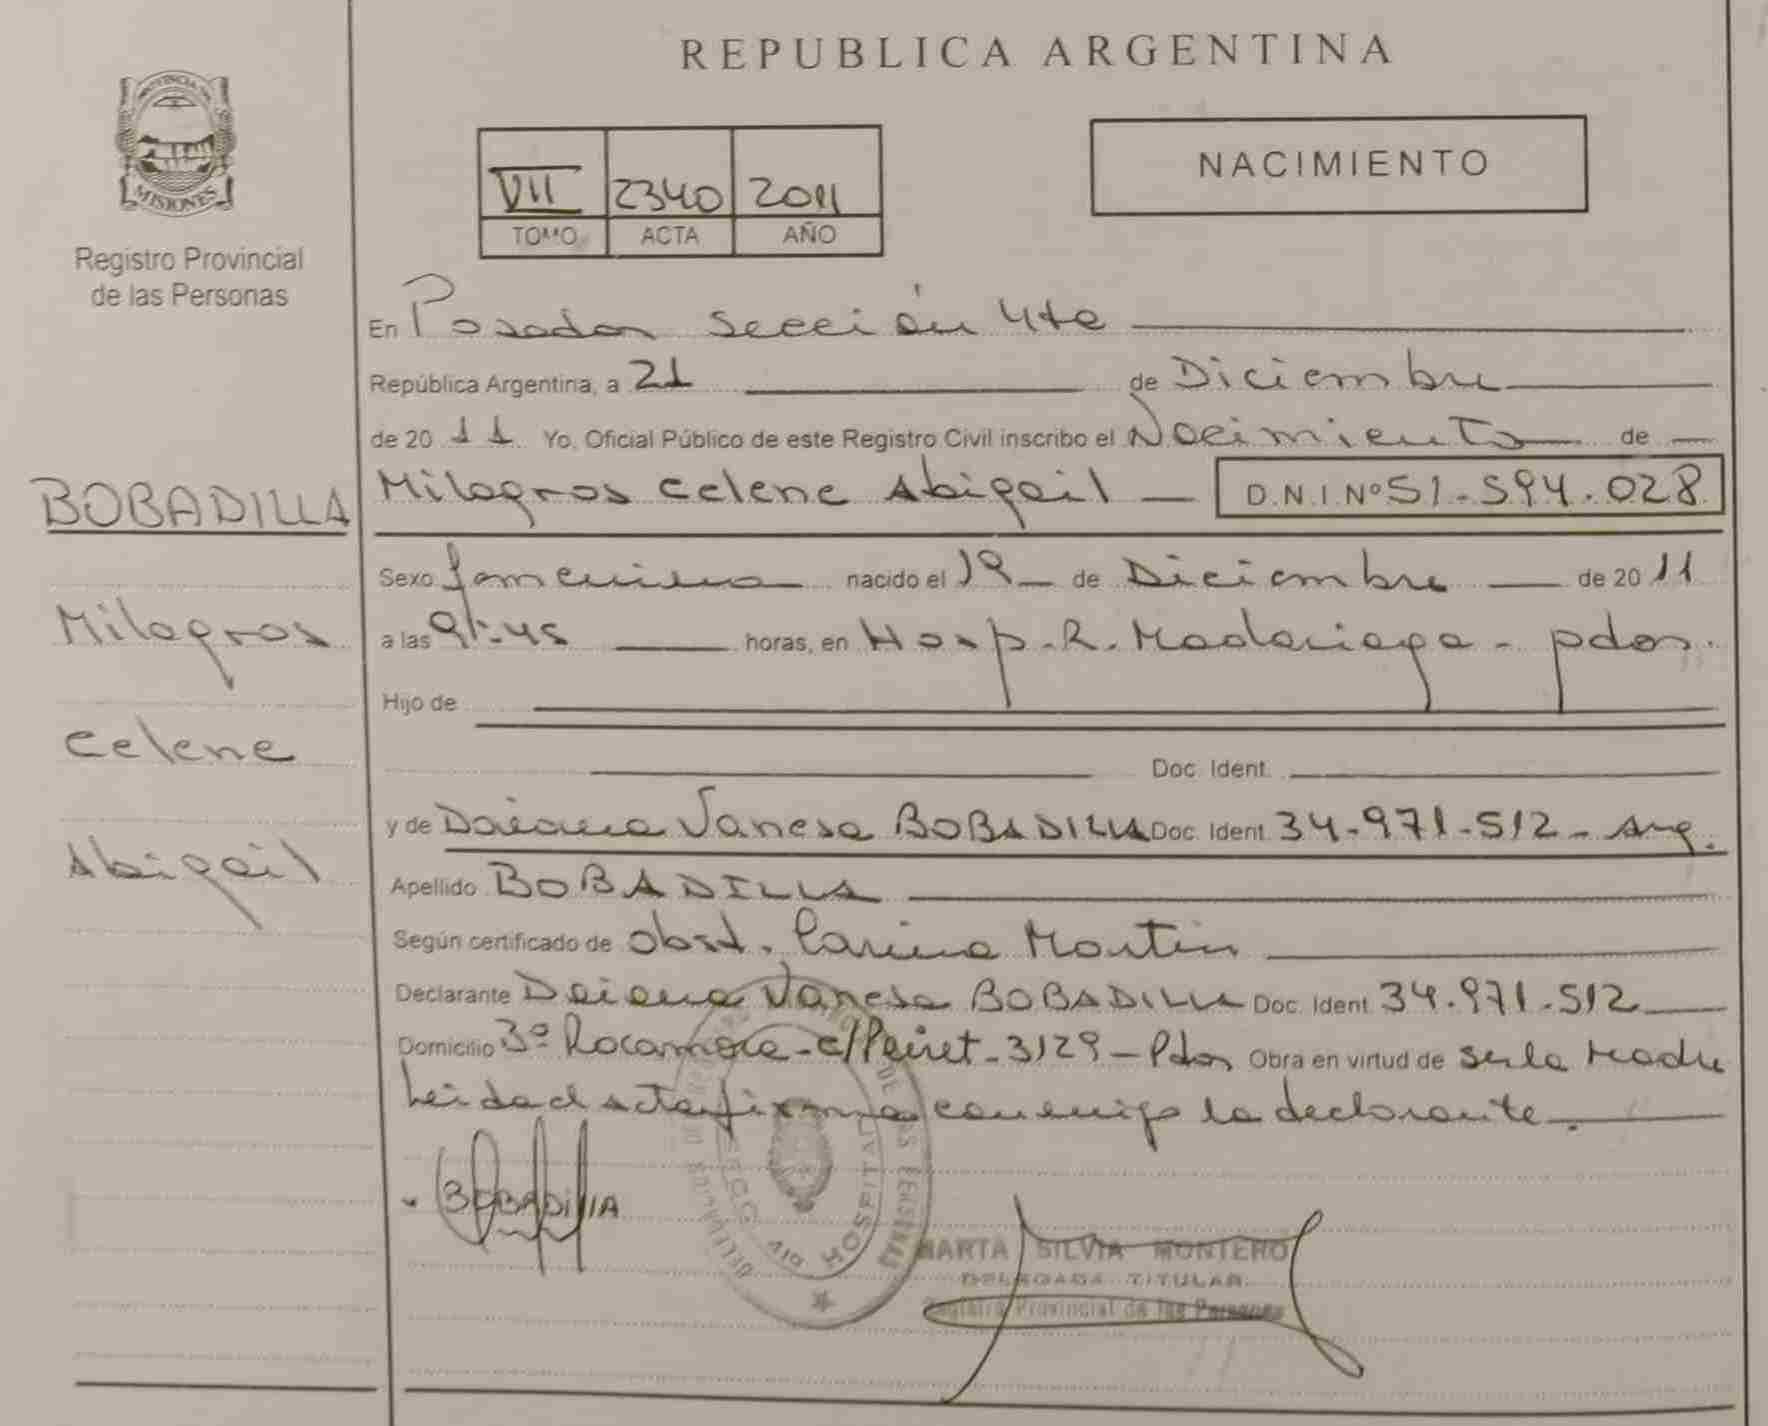 REPUBLICA ARGENTINA
PROVINCIA DE
MISIONES
Registro Provincial
de las Personas
VII 2340 2011
TOMO ACTA AÑO
NACIMIENTO
En Posadas sección 4ta
República Argentina, a 21 de Diciembre
de 2011 Yo, Oficial Público de este Registro Civil inscribo el Nacimiento de
Milagros Celene Abigail D.N.I Nº 51.594.028
Sexo femenino nacido el 19 de Diciembre de 2011
a las 9:45 horas, en Hosp. R. Madariaga - pdas.
Hijo de
Doc. Ident.
y de Daiana Vanesa BOBADILLA Doc. Ident. 34.971.512 - Arg.
Apellido BOBADILLA
Según certificado de Obst. Carina Martin
Declarante Daiana Vanesa BOBADILLA Doc. Ident. 34.971.512
Domicilio 3º Rocamora - c/Peiret - 3129 - Pdas Obra en virtud de ser la madre
Leida el acta firma conmigo la declarante.
BOBADILLA
BOBADILLA
Milagros
Celene
Abigail
HOSPITAL
MARTA SILVIA MONTERO
DELEGADA TITULAR
Registro Provincial de las Personas